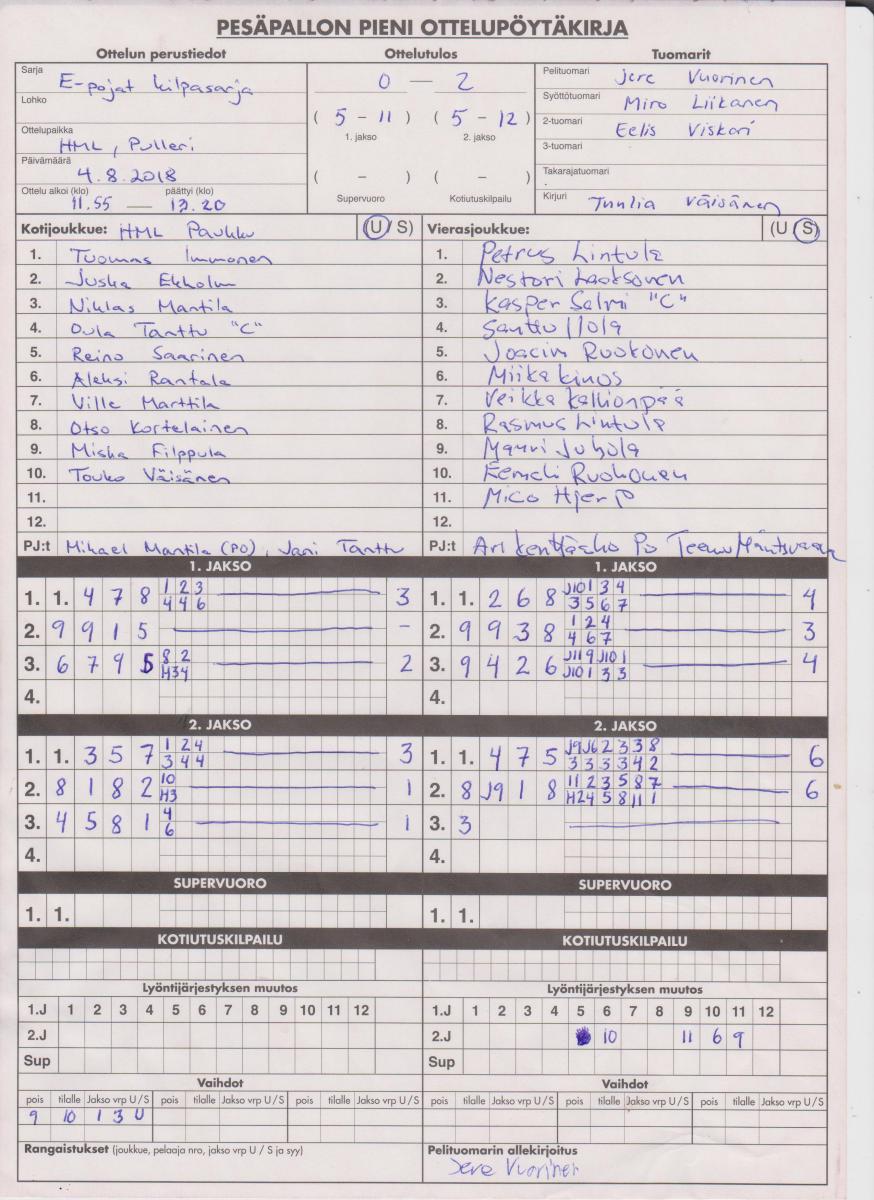 PESÄPALLON PIENI OTTELUPÖYTÄKIRJA
Ottelun perustiedot Ottelutulos Tuomarit
Sarja E-pojat kilpasarja
Lohko
Ottelupaikka HML, Pulleri
Päivämäärä 4.8.2018
Ottelu alkoi (klo) päättyi (klo)
11.55 — 13.20
0 — 2
( 5 - 11 ) ( 5 - 12 )
1. jakso 2. jakso
( - ) ( - )
Supervuoro Kotiutuskilpailu
Pelituomari Jere Vuorinen
Syöttötuomari Miro Liikanen
2-tuomari Eelis Viskari
3-tuomari
Takarajatuomari
Kirjuri Tuulia Väisänen
Kotijoukkue: HML Paukku (U/S)
1. Tuomas Immonen
2. Juska Ekholm
3. Niklas Mantila
4. Oula Tanttu "C"
5. Reino Saarinen
6. Aleksi Rantala
7. Ville Marttila
8. Otso Kortelainen
9. Miska Filppula
10. Touko Väisänen
11.
12.
PJ:t Mikael Mantila (PO), Jani Tanttu
Vierasjoukkue: (U S)
1. Petrus Lintula
2. Nestori Laaksonen
3. Kasper Salmi "C"
4. Santtu
5. Joacim Ruokonen
6. Miika Kinos
7. Veikka Kallionpää
8. Rasmus Lintula
9. Mauri Juhola
10. Eemeli Ruokonen
11. Mico Hjerp
12.
PJ:t Ari Kenttäaho PO Teemu
1. JAKSO
1. 1. 4 7 8 1 2 3 3
4 4 6
2. 9 9 1 5 -
3. 6 7 9 5 8 2 2
H3 4
4.
1. JAKSO
1. 1. 2 6 8 J10 1 3 4 4
3 5 6 7
2. 9 9 3 8 1 2 4 3
4 6 7
3. 9 4 2 6 J11 9 J10 1 4
J10 1 3 3
4.
2. JAKSO
1. 1. 3 5 7 1 2 4 3
3 4 4
2. 8 1 8 2 10 1
H3
3. 4 5 8 1 4 1
6
4.
2. JAKSO
1. 1. 4 7 5 J9 J6 2 3 3 8 6
3 3 3 3 4 2
2. 8 J9 1 8 11 2 3 5 8 7 6
H2 4 5 8 11 1
3. 3
4.
SUPERVUORO SUPERVUORO
1. 1. 1. 1.
KOTIUTUSKILPAILU KOTIUTUSKILPAILU
Lyöntijärjestyksen muutos Lyöntijärjestyksen muutos
1.J 1 2 3 4 5 6 7 8 9 10 11 12 1.J 1 2 3 4 5 6 7 8 9 10 11 12
2.J 2.J 10 11 6 9
Sup Sup
Vaihdot Vaihdot
pois tilalle Jakso vrp U/S pois tilalle Jakso vrp U/S pois tilalle Jakso vrp U/S pois tilalle Jakso vrp U/S pois tilalle Jakso vrp U/S pois tilalle Jakso vrp U/S
9 10 1 3 U
Rangaistukset (joukkue, pelaaja nro, jakso vrp U / S ja syy) Pelituomarin allekirjoitus
Jere Vuorinen